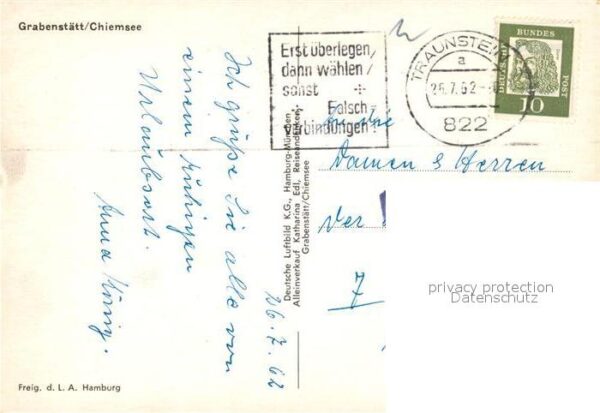 Grabenstätt/Chiemsee
Ich grüße Sie alle von
einem ruhigen
Urlaubsort.
Anna König.
26.7.62
Freig. d. L. A. Hamburg
Deutsche Luftbild K.G., Hamburg-München
Alleinverkauf Katharina Edl, Reiseandenken,
Grabenstätt/Chiemsee
Erst überlegen,
dann wählen
sonst
Falsch-
verbindungen!
TRAUNSTEIN
a
26.7.62
822
DEUTSCHE
BUNDES
POST
10
An die
Damen & Herren
der
7
privacy protection
Datenschutz